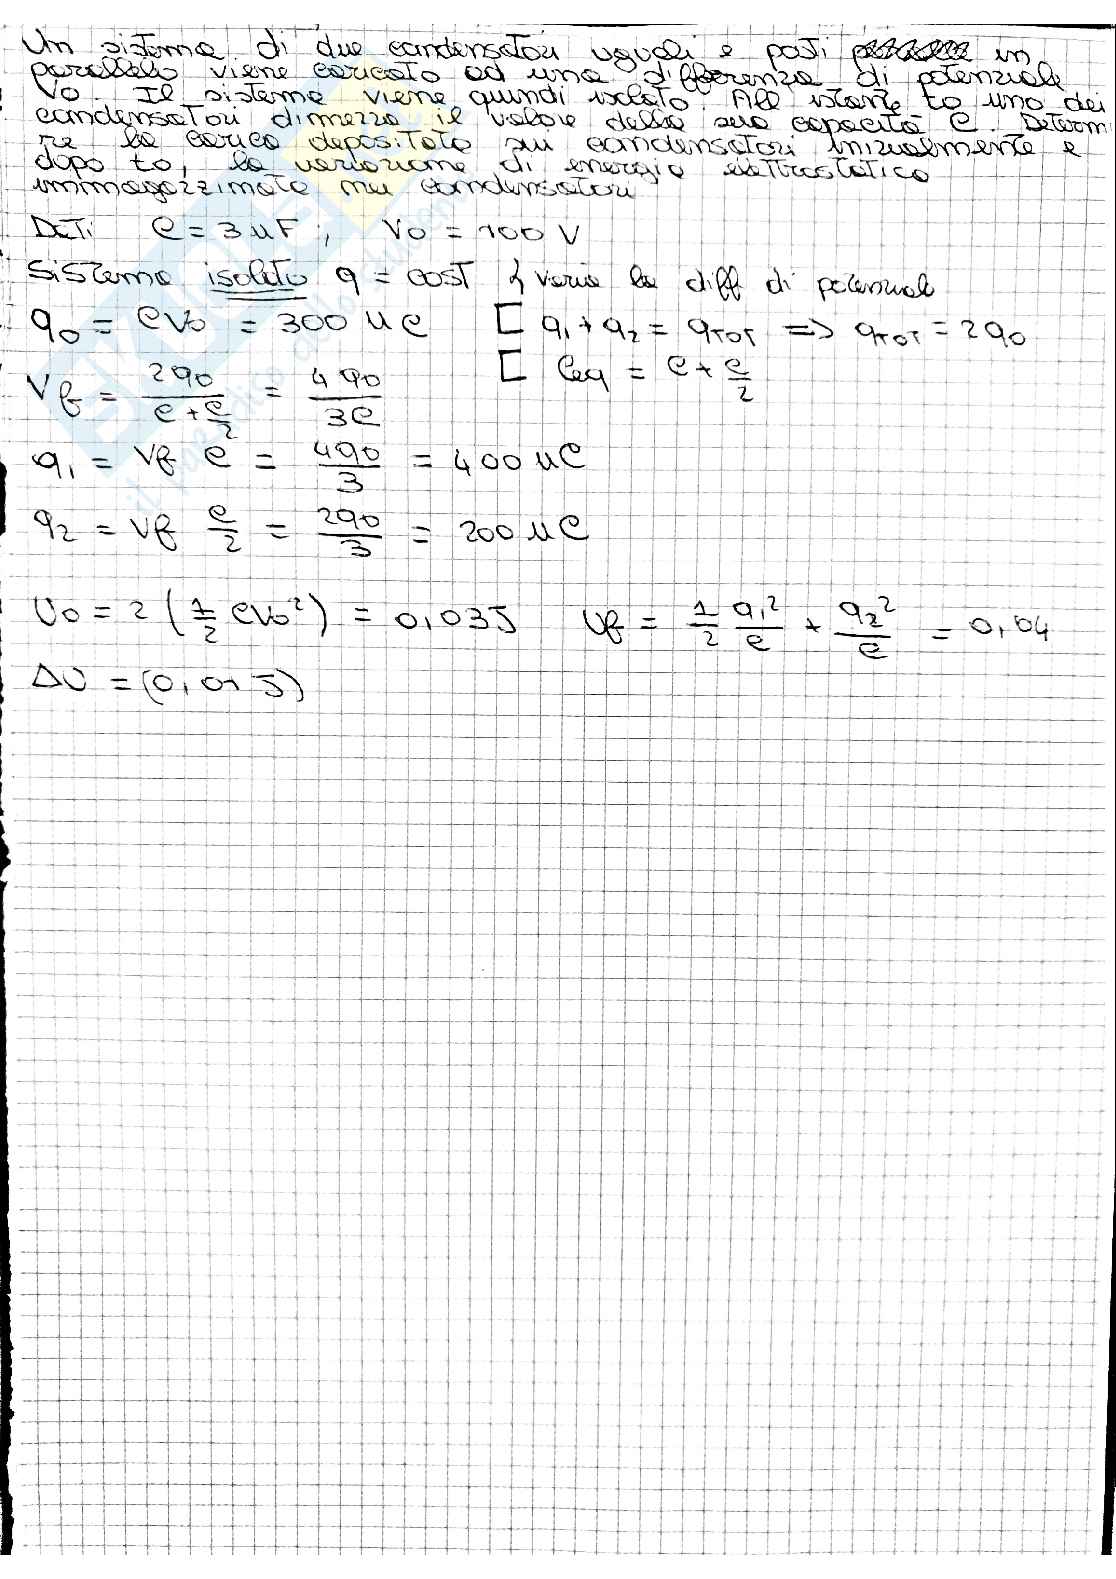 Un sistema di due condensatori uguali e posti in
parallelo viene caricato ad una differenza di potenziale
Vo. Il sistema viene quindi isolato. All istante to uno dei
condensatori dimezza il valore della sua capacità C. Determ
re la carica depositata sui condensatori inizialmente e
dopo to, la variazione di energia elettrostatica
immagazzinata nei condensatori
DATI C = 3 uF, Vo = 100 V
SISTema isolato q = cost varia la diff di potenziale
q0 = CV0 = 300 uC [ q1 + q2 = qTOT => qTOT = 2q0
[ Ceq = C + C/2
Vf = 2q0 / (C + C/2) = 4q0 / 3C
q1 = Vf C = 4q0/3 = 400 uC
q2 = Vf C/2 = 2q0/3 = 200 uC
U0 = 2 (1/2 CV0²) = 0,03J Uf = 1/2 q1²/C + q2²/C = 0,04
ΔU = (0,01 J)